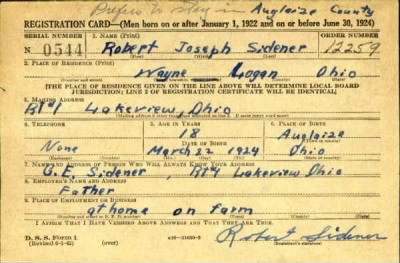 Auglaize County
REGISTRATION CARD—(Men born on or after January 1, 1922 and on or before June 30, 1924)
SERIAL NUMBER 1. NAME (Print) ORDER NUMBER
N 0544 Robert Joseph Sidener 12259
2. PLACE OF RESIDENCE (Print)
Wayne Logan Ohio
[THE PLACE OF RESIDENCE GIVEN ON THE LINE ABOVE WILL DETERMINE LOCAL BOARD
JURISDICTION; LINE 2 OF REGISTRATION CERTIFICATE WILL BE IDENTICAL]
3. MAILING ADDRESS
Lakeview, Ohio
4. TELEPHONE 5. AGE IN YEARS 6. PLACE OF BIRTH
18 Auglaize
DATE OF BIRTH
None March 22 1924 Ohio
7. NAME AND ADDRESS OF PERSON WHO WILL ALWAYS KNOW YOUR ADDRESS
G. E. Sidener Rt 4 Lakeview Ohio
8. EMPLOYER'S NAME AND ADDRESS
Father
9. PLACE OF EMPLOYMENT OR BUSINESS
at home on farm
I AFFIRM THAT I HAVE VERIFIED ABOVE ANSWERS AND THAT THEY ARE TRUE.
D. S. S. Form 1 Robert Sidener
(over) (Registrant's signature)